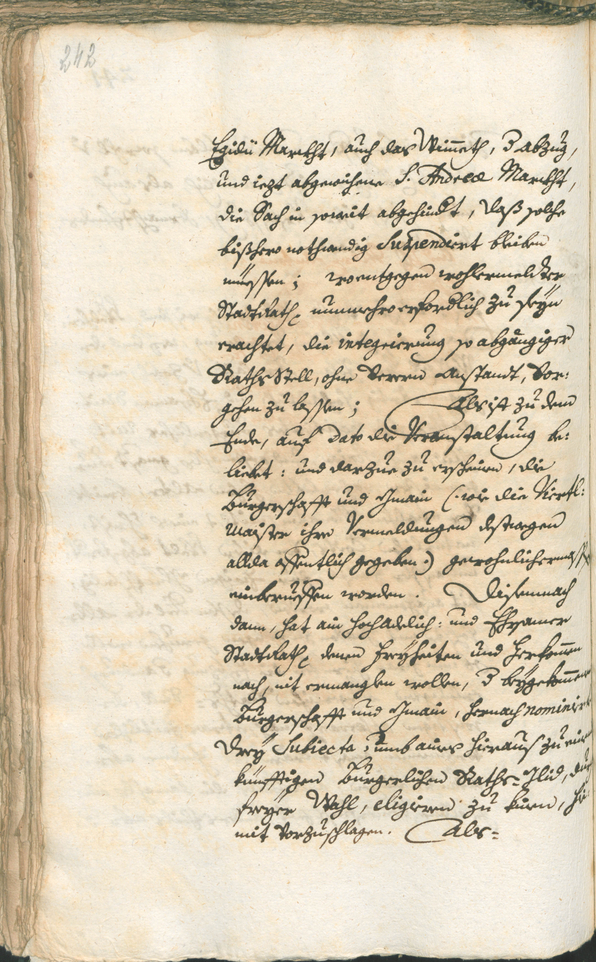 242
Egidii Marckht, auch das Wimeth, 3 abzug,
und iezt abgewichene S. Andreæ Marckht,
die Sach in soweit abgehindt, daß solche
bißhero nothwendig Suspendirt bleiben
müessen; woentgegen wohlermelter
StadtRath, nunmehro erfordlich zu seyn
erachtet, die integrierung so abgängiger
RathsStell, ohne Anstandt, vor:
gehen zu lassen; Als ist zu dem
Ende, auf Dato die Veranstaltung be:
liebt: und darzue zu erscheinen, die
Bürgerschafft und Gmain (:wie die Viertl:
Maister ihre Vermeldungen destwegen
allda offentlich gegeben:) gewohnlicher
einberueffen worden. Disemnach
dann, hat ain Hochadelich: und Ehrsamer
StadtRath, denen Freyheiten und Herkomen
nach, nit ermanglen wollen, 3 beygekomener
Bürgerschafft und Gmain, hernach nominirt
drey Subiecta, umb aines hierauß zu
künfftigen Bürgerlichen Raths=Glid,
freyer Wahl, eligiren zu kinen, hie
mit vorzuschlagen. Als=